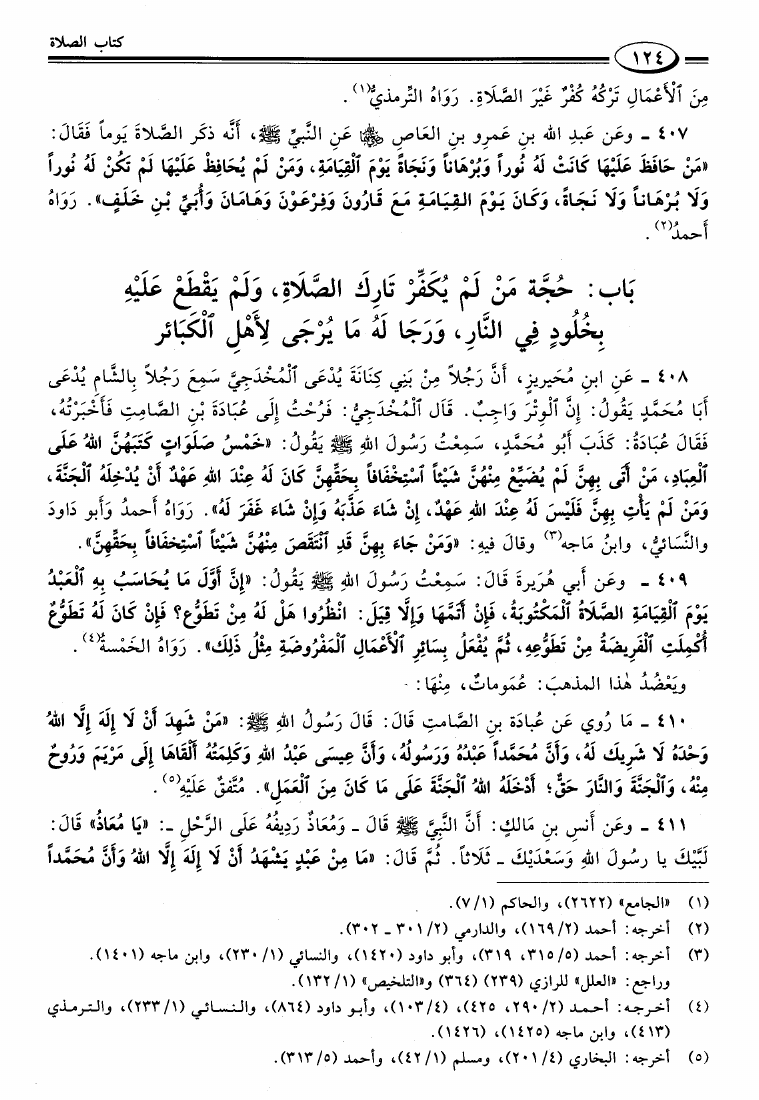 كتاب الصلاة
١٢٤
مِنَ ٱلْأَعْمَالِ تَرْكُهُ كُفْرٌ غَيْرَ الصَّلَاةِ. رَوَاهُ التِّرمذيُّ(١).
٤٠٧ ـ وعَن عَبدِ الله بنِ عَمرِو بنِ العَاصِ ﵁ عَنِ النَّبيِّ ﷺ، أَنَّه ذكَر الصَّلاةَ يَوماً فَقَالَ:
«مَنْ حَافَظَ عَلَيْهَا كَانَتْ لَهُ نُوراً وَبُرْهَاناً وَنَجَاةً يَوْمَ ٱلْقِيَامَةِ، وَمَنْ لَمْ يُحَافِظْ عَلَيْهَا لَمْ تَكُنْ لَهُ نُوراً
وَلَا بُرْهَاناً وَلَا نَجَاةً، وَكَانَ يَوْمَ القِيَامَةِ مَعَ قَارُونَ وَفِرْعَوْنَ وَهَامَانَ وَأُبَيِّ بْنِ خَلَفٍ». رَوَاهُ
أَحمدُ(٢).
بَاب: حُجَّة مَنْ لَمْ يُكَفِّرْ تَارِكَ الصَّلَاةِ، وَلَمْ يَقْطَعْ عَلَيْهِ
بِخُلُودٍ فِي النَّارِ، وَرَجَا لَهُ مَا يُرْجَى لِأَهْلِ ٱلْكَبَائر
٤٠٨ ـ عَنِ ابنِ مُحَيريزٍ، أَنَّ رَجُلاً مِنْ بَنِي كِنَانَةَ يُدْعَى ٱلْمُخْدَجِيَّ سَمِعَ رَجُلاً بِالشَّامِ يُدْعَى
أَبَا مُحَمَّدٍ يَقُولُ: إِنَّ ٱلْوِتْرَ وَاجِبٌ. قَال ٱلْمُخْدَجِيُّ: فَرُحْتُ إِلَى عُبَادَةَ بْنِ الصَّامِتِ فَأَخْبَرْتُهُ،
فَقَالَ عُبَادَةُ: كَذَبَ أَبُو مُحَمَّدٍ، سَمِعْتُ رَسُولَ اللهِ ﷺ يَقُولُ: «خَمْسُ صَلَوَاتٍ كَتَبَهُنَّ اللهُ عَلَى
ٱلْعِبَادِ، مَنْ أَتَى بِهِنَّ لَمْ يُضَيِّعْ مِنْهُنَّ شَيْئاً ٱسْتِخْفَافاً بِحَقِّهِنَّ كَانَ لَهُ عِنْدَ اللهِ عَهْدٌ أَنْ يُدْخِلَهُ ٱلْجَنَّةَ،
وَمَنْ لَمْ يَأْتِ بِهِنَّ فَلَيْسَ لَهُ عِنْدَ اللهِ عَهْدٌ، إِنْ شَاءَ عَذَّبَهُ وَإِنْ شَاءَ غَفَرَ لَهُ». رَوَاهُ أَحمدُ وَأَبو دَاودَ
والنَّسَائيُّ، وابنُ مَاجه(٣) وقالَ فيهِ: «وَمَنْ جَاءَ بِهِنَّ قَدِ ٱنْتَقَصَ مِنْهُنَّ شَيْئاً ٱسْتِخفَافاً بِحَقِّهِنَّ».
٤٠٩ ـ وعَن أَبي هُرَيرةَ قَالَ: سَمِعْتُ رَسُولَ اللهِ ﷺ يَقُولُ: «إِنَّ أَوَّلَ مَا يُحَاسَبُ بِهِ ٱلْعَبْدُ
يَوْمَ ٱلْقِيَامَةِ الصَّلَاةُ ٱلْمَكْتُوبَةُ، فَإِنْ أَتَمَّهَا وَإِلَّا قِيلَ: انْظُرُوا هَلْ لَهُ مِنْ تَطَوُّع؟ فَإِنْ كَانَ لَهُ تَطَوُّعٌ
أُكْمِلَتِ ٱلْفَرِيضَةُ مِنْ تَطَوُّعِهِ، ثُمَّ يُفْعَلُ بِسَائِرِ ٱلْأَعْمَالِ ٱلْمَفْرُوضَةِ مِثْلُ ذَلِكَ». رَوَاهُ الخَمْسةُ(٤).
ويَعْضُدُ هٰذا المذهبَ: عُمُوماتٌ، مِنْهَا:
٤١٠ ـ مَا رُوي عَن عُبادَة بنِ الصَّامتِ قَالَ: قَالَ رَسُولُ اللهِ ﷺ: «مَنْ شَهِدَ أَنْ لَا إِلَهَ إِلَّا اللهُ
وَحْدَهُ لَا شَرِيكَ لَهُ، وَأَنَّ مُحَمَّداً عَبْدُهُ وَرَسُولُهُ، وَأَنَّ عِيسَى عَبْدُ اللهِ وَكَلِمَتُهُ أَلْقَاهَا إِلَى مَرْيَمَ وَرُوحٌ
مِنْهُ، وَٱلْجَنَّةَ وَالنَّارَ حَقٌّ؛ أَدْخَلَهُ اللهُ ٱلْجَنَّةَ عَلَى مَا كَانَ مِنَ ٱلْعَمَلِ». مُتَّفقٌ عَلَيْهِ(٥).
٤١١ ـ وعَن أَنسِ بنِ مَالكٍ: أَنَّ النَّبيَّ ﷺ قَالَ ـ وَمُعَاذٌ رَدِيفُهُ عَلَى الرَّحْلِ ـ: «يَا مُعَاذُ» قَالَ:
لَبَّيْكَ يا رسُولَ اللهِ وَسَعْدَيْكَ ـ ثَلَاثاً. ثُمَّ قَالَ: «مَا مِنْ عَبْدٍ يَشْهَدُ أَنْ لَا إِلَهَ إِلَّا اللهُ وَأَنَّ مُحَمَّداً
(١) «الجامع» (٢٦٢٢)، والحاكم (٧/١).
(٢) أخرجه: أحمد (١٦٩/٢)، والدارمي (٣٠١/٢ ـ ٣٠٢).
(٣) أخرجه: أحمد (٣١٥/٥، ٣١٩)، وأبو داود (١٤٢٠)، والنسائي (٢٣٠/١)، وابن ماجه (١٤٠١).
وراجع: «العلل» للرازي (٢٣٩) (٣٦٤) و«التلخيص» (١٣٢/١).
(٤) أخرجه: أحمد (٢٩٠/٢، ٤٢٥)، (١٠٣/٤)، وأبو داود (٨٦٤)، والنسائي (٢٣٣/١)، والترمذي
(٤١٣)، وابن ماجه (١٤٢٥)، (١٤٢٦).
(٥) أخرجه: البخاري (٢٠١/٤)، ومسلم (٤٢/١)، وأحمد (٣١٣/٥).